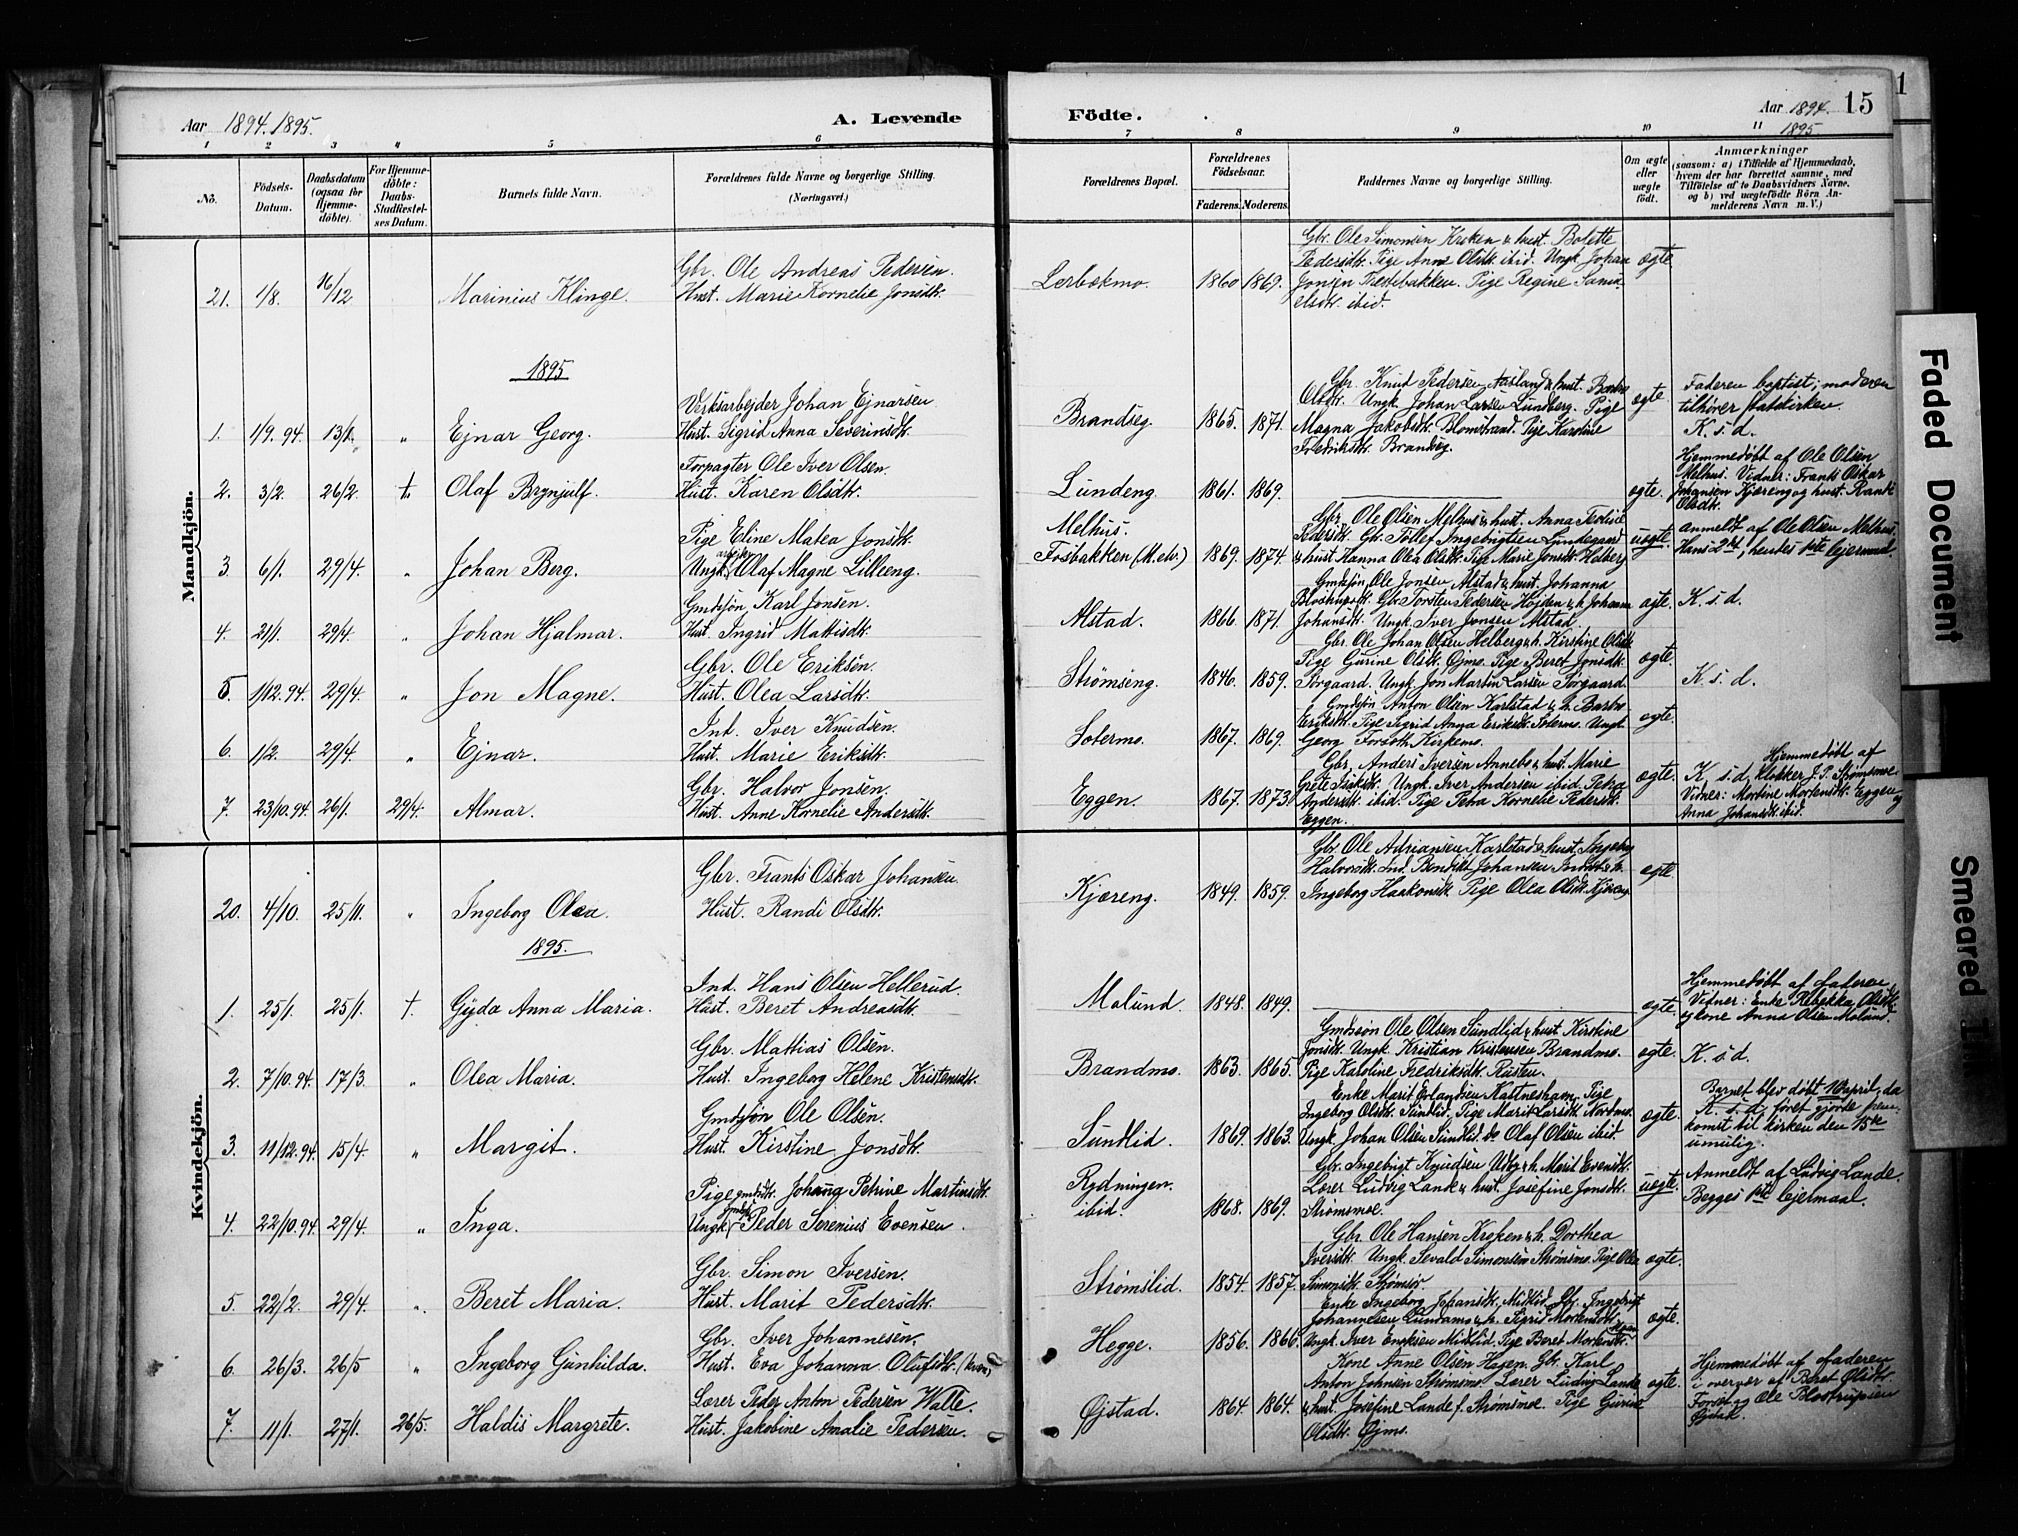 Aar 1894. 1895.
A. Levende
Födte.
Aar 1894. 15
1895
1 2 3 4 5 6 7 8 9 10 11
No.
Födsels-
Datum.
Daabsdatum
(ogsaa for
Hjemme-
döbte).
For Hjemme-
döbte:
Daabs-
Stadfæstel-
ses Datum.
Barnets fulde Navn.
Forældrenes fulde Navne og borgerlige Stilling.
(Næringsvei.)
Forældrenes Bopæl.
Forældrenes
Födselsaar.
Faderens. Moderens.
Faddernes Navne og borgerlige Stilling.
Om ægte
eller
uægte
födt.
Anmærkninger
(saasom: a) i Tilfælde af Hjemmedaab,
hvem der har forrettet samme, med
Tilföielse af to Daabsvidners Navne.
og b) ved uægtefödte Börn An-
melderens Navn m. V.)
Mandkjön.
21. 1/8. 16/12 Marinius Klinge.
Gbr. Ole Andreas Pedersen.
Hust. Marie Kornelie Jonsdtr.
Lerbækmo. 1860 1869.
Gbr. Ole Simonsen Kroken & hust. Bolette
Pedersdtr. Pige Anne Olsdtr. ibid. Ungk. Johan
Jonsen . Pige Regine Samu-
elsdtr. ibid.
ægte
1895
1. 1/9. 94. 13/1. " Ejnar Georg.
Verksarbejder Johan Ejnarsen
Hust. Sigrid Anna Severinsdtr.
Brandseg. 1865. 1871.
Gbr. Knud Pedersen Aasland & hust. Barbro
Olsdtr. Ungk. Johan Larsen Lundberg. Pige
Magna Jakobsdtr. Blomstrand. Pige Karoline
Fredriksdtr. Brandseg.
ægte
Faderen baptist; moderen
tilhører statskirken.
K. s. d.
2. 3/2. 26/2. †. Olaf Brynjulf.
Forpagter Ole Iver Olsen.
Hust. Karen Olsdtr.
Lundeng. 1861. 1869.
ægte.
Hjemmedøbt af Ole Olsen
Melhus. Vidner: Frants Oskar
Johansen Kjæreng og hust. Randi
Olsdtr.
3. 6/1. 29/4. " Johan Berg.
Pige Eline Matea Jonsdtr.
Ungk. Olaf Magne Lilleeng.
Melhus.
Fosbakken (M.elv.) 1869. 1874.
Gbr. Ole Olsen Melhus & hust. Anna
Pedersdtr. Gbr. Tollef Ingebrigtsen Lundegaard
& hust. Hanna Olea Olsdtr. Pige Marie Jonsdtr. Holberg.
uægte.
Anmeldt af Ole Olsen Melhus,
Hans 2det, hendes 1ste lejermaal.
4. 21/1. 29/4. " Johan Hjalmar.
Gmdsjøn Karl Jonsen.
Hust. Ingrid Mattisdtr.
Alstad. 1866. 1871.
Gmdsjøn Ole Jonsen Alstad & hust. Johanna
Gbr. Torsten Pedersen & h. Johanna
Johansdtr. Ungk. Iver Jonsen Alstad.
ægte. K. s. d.
5. 1/12. 94. 29/4. " Jon Magne.
Gbr. Ole Eriksen.
Hust. Olea Larsdtr.
Strømseng. 1846. 1859.
Gbr. Ole Johan Olsen Helberg & h. Kirstine Olsdtr.
Pige Gurine Olsdtr. Øjmo. Pige Beret Jonsdtr.
. Ungk. Jon Martin Larsen
ægte. K. s. d.
6. 1/2. 29/4. " Ejnar.
Ind. Iver Knudsen.
Hust. Marie Eriksdtr.
Sotermo. 1867. 1869.
Gmdsjøn Anton Olsen Karlstad & h. Barbro
Eriksdtr. Pige Sigrid Anna Eriksdtr. Sotermo. Ungk.
Georg Forseth Kirkemo.
ægte.
7. 23/10. 94. 26/1. 29/4. Almar.
Gbr. Halvor Jonsen.
Hust. Anne Kornelie Andersdtr.
Eggen. 1867. 1873
Gbr. Anders Iversen Annebo & hust. Marie
Grete Isaksdtr. Ungk. Iver Andersen ibid. Petra
Andersdtr. ibid. Pige Petra Kornelie Pedersdtr.
Eggen.
ægte.
Hjemmedøbt af
K. s. d. klokker J. P. Strømsmoe.
Vidner: Martine Mortensdtr. Eggen og
Anna Johansdtr. ibid.
Kvindekjön.
20. 4/10. 25/11. " Ingeborg Olea.
Gbr. Frants Oskar Johansen.
Hust. Randi Olsdtr.
Kjæreng. 1849. 1859.
Gbr. Ole Adriansen Karlstad & hust. Ingeborg
Halvorsdtr. Ind. Bendikt Johansen Indset & h.
Ingeborg Haakonsdtr. Pige Olea Olsdtr. Kjæreng
ægte
1895.
1. 25/1. 25/1. †. Gyda Anna Maria.
Ind. Hans Olsen Hellerud.
Hust. Beret Andreasdtr.
Molund. 1848. 1849.
ægte.
Hjemmedøbt af faderen
Vidner: Enke Rebekka Olsdtr.
og kone Anna Olsen Molund.
2. 7/10. 94. 17/3. " Olea Maria.
Gbr. Mattias Olsen.
Hust. Ingeborg Helene Kristensdtr.
Brandmo. 1863. 1865.
Gmdssøn Ole Olsen Sundlid & hust. Kirstine
Jonsdtr. Ungk. Kristian Kristensen Brandmo.
Pige Karoline Fredriksdtr. Rusten.
ægte. K. s. d.
3. 11/12. 94. 15/4. " Margit.
Gmdsjøn Ole Olsen.
Hust. Kirstine Jonsdtr.
Sundlid. 1869. 1863.
Enke Marit Erlandsen Kattuesham. Pige
Ingeborg Olsdtr. Sundlid. Pige Marit Larsdtr. Nordmo.
Ungk. Johan Olsen Sundlid. do Olaf Olsen ibid.
ægte.
Barnet blev døbt 16 april, da
K. s. d. føret gjorde frem-
komst til kirken den 15de
umulig.
4. 22/10. 94. 29/4. " Inga.
Pige gmdsdtr. Johanna Petrine Martinsdtr.
Ungk. Peder Serenius Evensen.
Rydningen.
ibid. 1868. 1869.
Gbr. Ingebrigt Knudsen Udby & h. Marit Evensdtr.
Lærer Ludvig Lande & hust. Josefine Jonsdtr.
Strømsmoe.
uægte.
Anmeldt af Ludvig Lande.
Begges 1ste lejermaal.
5. 22/2. 29/4. " Beret Maria.
Gbr. Simon Iversen.
Hust. Marit Pedersdtr.
Strømslid. 1854. 1857.
Gbr. Ole Hansen Kroken & h. Dorthea
Iversdtr. Ungk. Sevald Simonsen Strømsmo. Pige Olea
Simonsdtr. Strømsør
ægte.
6. 26/3. 26/5 " Ingeborg Gunhilda.
Gbr. Iver Johannesen.
Hust. Eva Johanna Olufsdtr.
Hegge. 1856. 1866.
Enke Ingeborg Johansdtr. Midtlid. Gbr. Ingebrigt
Johannesen Lundamo & h. Sigrid Mortensdtr.
Ungk. Iver Eriksen Midtlid. Pige Beret Mortensdtr.
ægte.
7. 11/1. 27/1. 26/5. Haldis Margrete.
Lærer Peder Anton Pedersen Walle.
Hust. Jakobine Amalie Pedersen.
Øjstad. 1864. 1864.
Kone Anne Olsen Hagen. Gbr. Karl
Anton Johnsen Strømsmo. Lærer Ludvig Lande
& hust. Josefine Lande f. Strømsmoe. Pige Gurine
Olsdtr. Øjmo.
ægte.
Hjemmedøbt af faderen
i overvær af Beret Olsdtr.
og Ole Blostrupsen
Øjstad.
Faded Document
Smeared